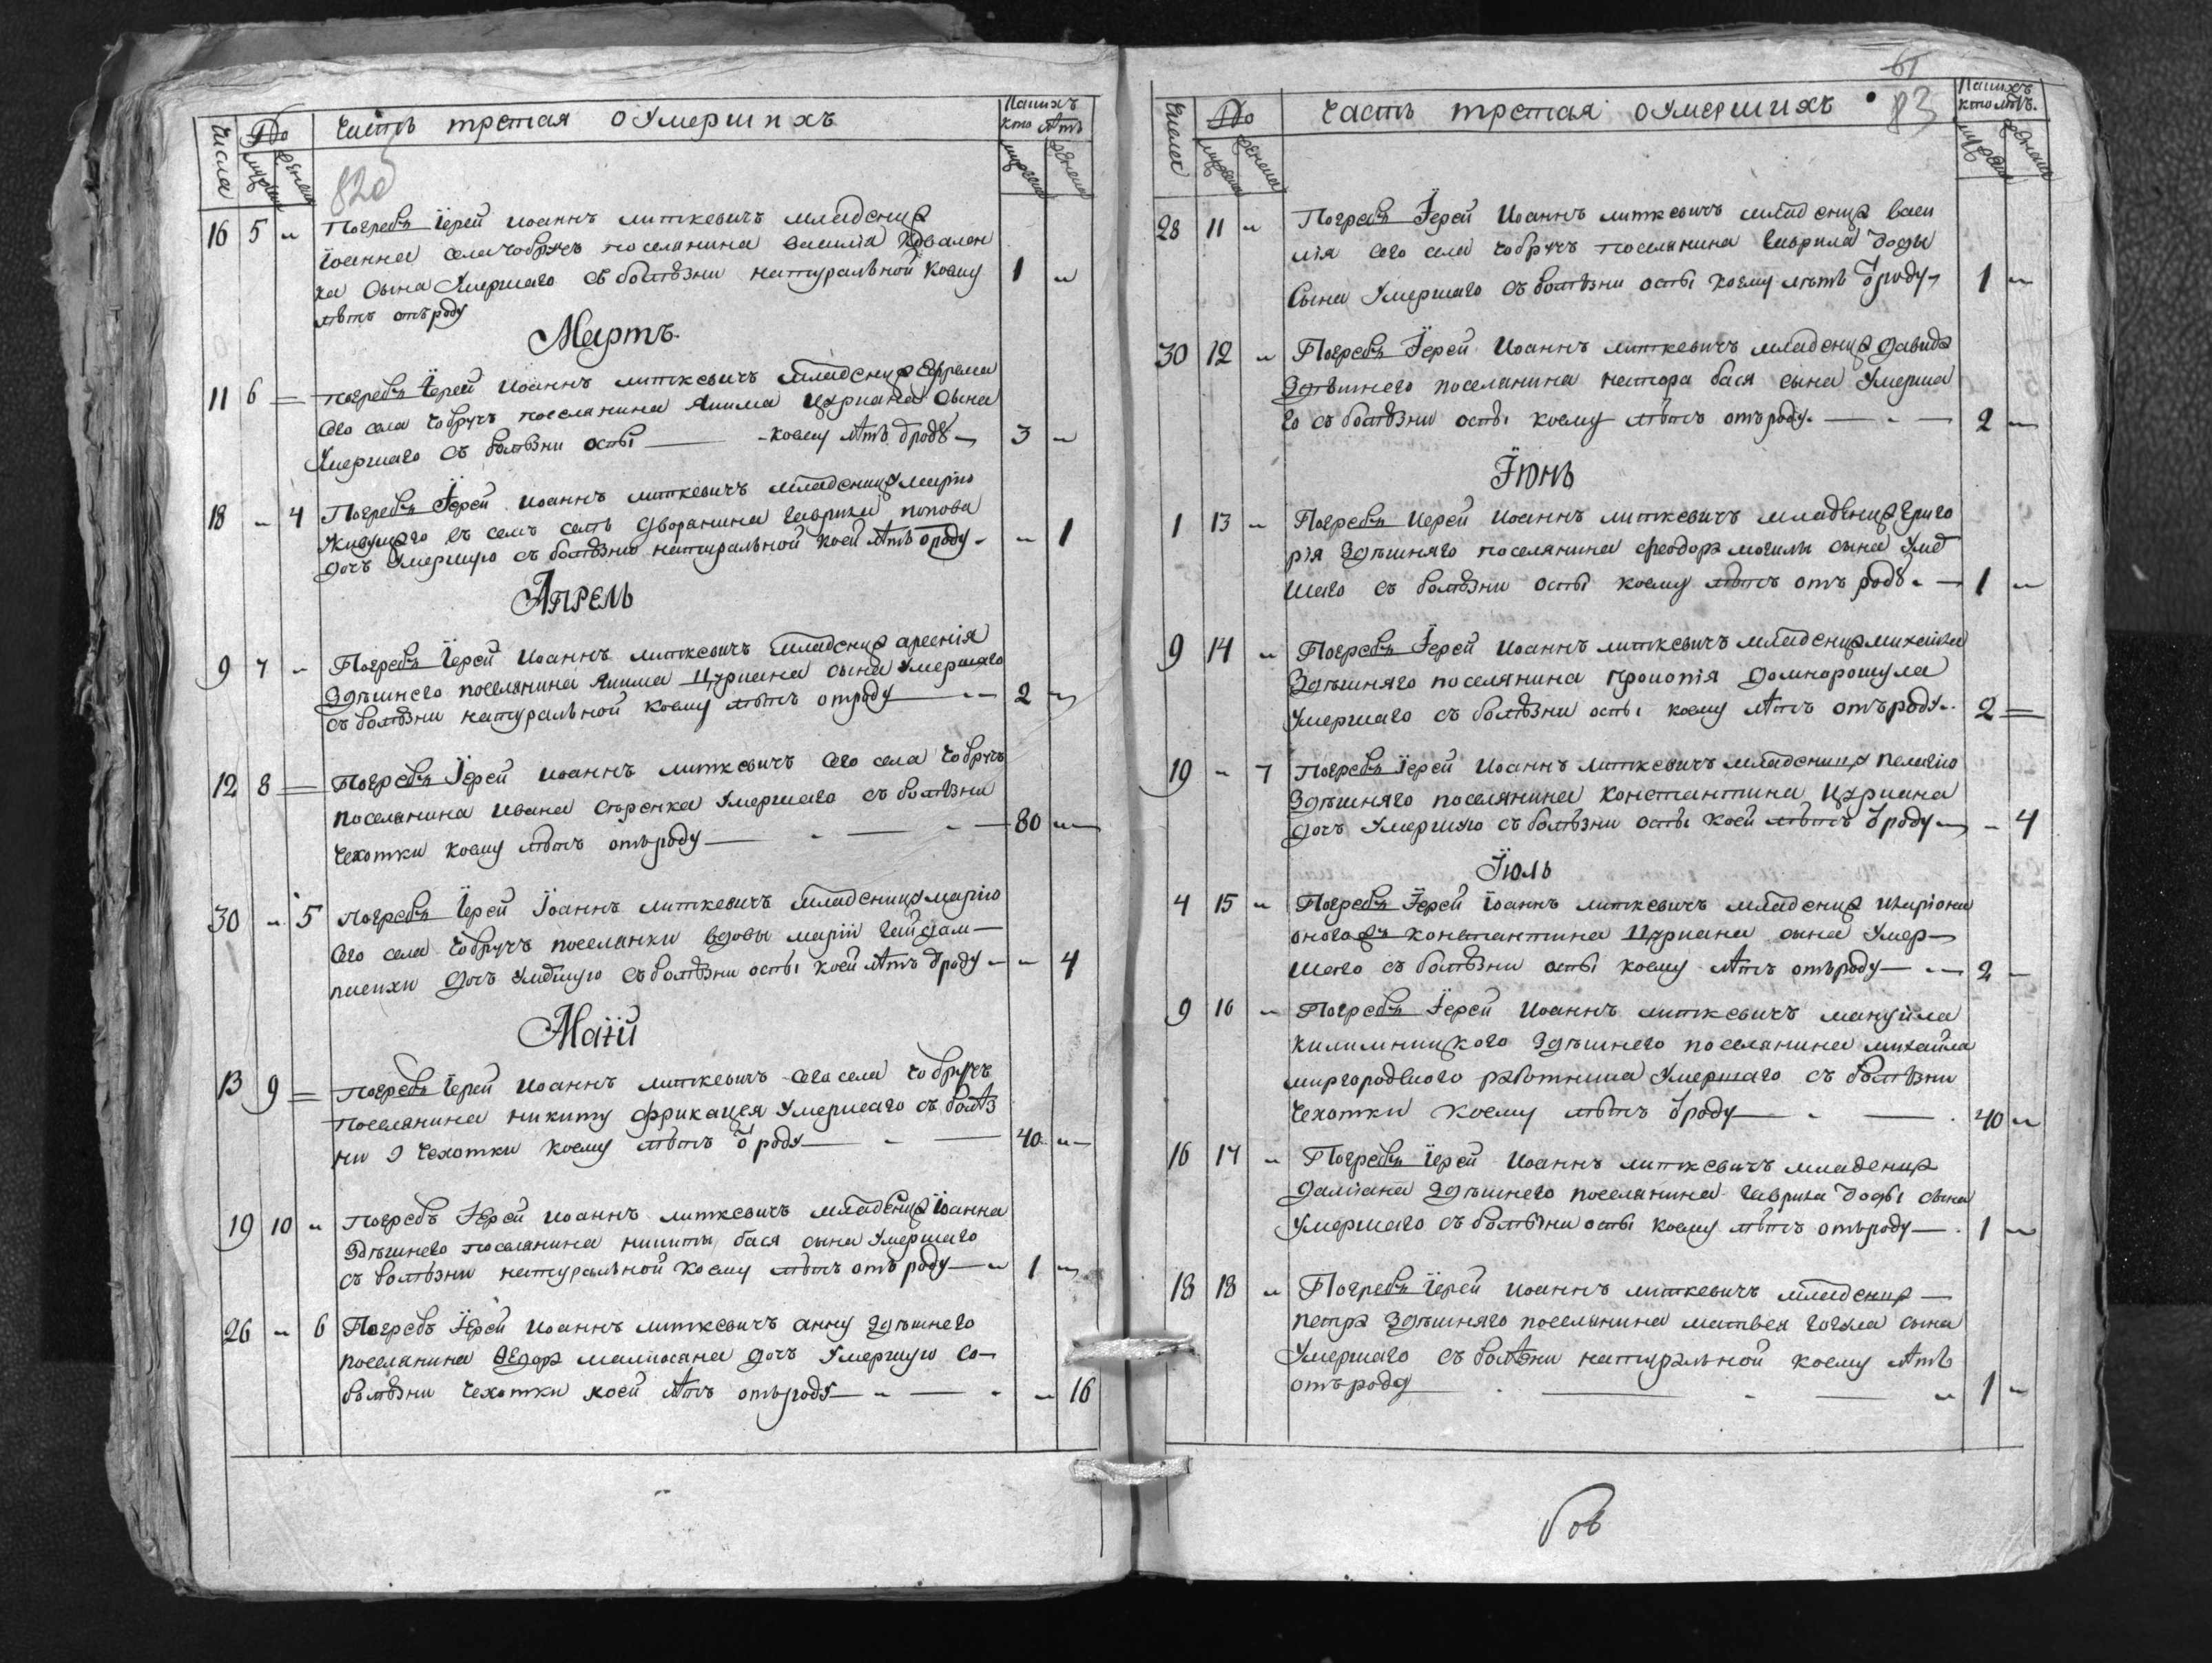 Числа
Часть третая о Умершихъ
Коихъ
кто лѣтъ
82об
16 5 Погребъ Іерей Иоаннъ литкевичъ младенца
Іоанна села Чобручъ поселянина василія Ковален
ка сына Умершаго съ болѣзни натуральной коему 1
лѣтъ отъ роду
Мартъ
11 6 погребъ Іерей Иоаннъ литкевичъ младенца Ефрема
сего села Чобручъ поселянина Якима Цуркана сына
Умершаго съ болѣзни оспы — коему лѣтъ ѿ роду 3
18 4 Погребъ Іерей Иоаннъ литкевичъ младенцу марію
живущего въ семъ селѣ дворанина Гаврила попова
дочъ Умершую съ болѣзни натуральной коей лѣтъ ѿ роду 1
Апрель
9 7 Погребъ Іерей Иоаннъ литкевичъ младенца арсенія
здѣшнего поселянина Якима Цуркана сына Умершаго
съ болѣзни натуральной коему лѣтъ от роду 2
12 8 Погребъ Іерей Иоаннъ литкевичъ сего села Чобручъ
поселянина Ивана Умершаго съ болѣзни
Чехотки коему лѣтъ отъ роду 80
30 5 погребъ Іерей Іоаннъ литкевичъ младенцу марію
сего села Чобручъ поселянки вдовы маріи Гайдам—
дочъ Умершую съ болѣзни оспы коей лѣтъ ѿ роду 4
Маій
13 9 погребъ Іерей Иоаннъ литкевичъ сего села Чобручъ
поселянина никиту Фрикацея Умершаго съ болѣз
ни Чехотки коему лѣтъ ѿ роду 40
19 10 Погребъ Іерей Иоаннъ литкевичъ младенца Іоанна
здѣшнего поселянина никиты бася сына Умершаго
съ болѣзни натуральной коему лѣтъ отъ роду 1
26 6 Погребъ Іерей Иоаннъ литкевичъ анну здѣшнего
поселянина Ѳедора дочъ Умершую со
болѣзни Чехотки коей лѣтъ отъ роду 16
61
83
Числа
Часть третая о Умершихъ
Коихъ
кто лѣтъ
28 11 Погребъ Іерей Иоаннъ литкевичъ младенца васи
лія сего села Чобручъ поселянина Гаврила
сына Умершаго съ болѣзни оспы коему лѣтъ ѿ роду 1
30 12 Погребъ Іерей Иоаннъ литкевичъ младенца давида
здѣшнего поселянина бася сына Умерша
го съ болѣзни оспы коему лѣтъ отъ роду 2
Іюнь
1 13 Погребъ Иерей Иоаннъ литкевичъ младенца Григо
рія здѣшняго поселянина Феодора могилы сына
шаго съ болѣзни оспы коему лѣтъ отъ роду 1
9 14 Погребъ Іерей Иоаннъ литкевичъ младенца михаила
здѣшняго поселянина
Умершаго съ болѣзни оспы коему лѣтъ отъ роду 2
19 7 Погребъ Іерей Иоаннъ литкевичъ младенцу пелагію
здѣшняго поселянина константина Цуркана
дочъ Умершую съ болѣзни оспы коей лѣтъ ѿ роду 4
Іюль
4 15 Погребъ Іерей Іоаннъ литкевичъ младенца Иларіона
оного константина Цуркана сына Умер
шаго съ болѣзни оспы коему лѣтъ отъ роду 2
9 16 Погребъ Іерей Иоаннъ литкевичъ мануйла
здѣшнего поселянина михаила
миргородского работника Умершаго съ болѣзни
Чехотки коему лѣтъ ѿ роду 40
16 17 Погребъ Іерей Иоаннъ литкевичъ младенца
даміана здѣшнего поселянина Гаврила сына
Умершаго съ болѣзни оспы коему лѣтъ отъ роду 1
18 18 Погребъ Іерей Иоаннъ литкевичъ младенца
петра здѣшняго поселянина матвея сына
Умершаго съ болѣзни натуральной коему лѣтъ
отъ роду 1